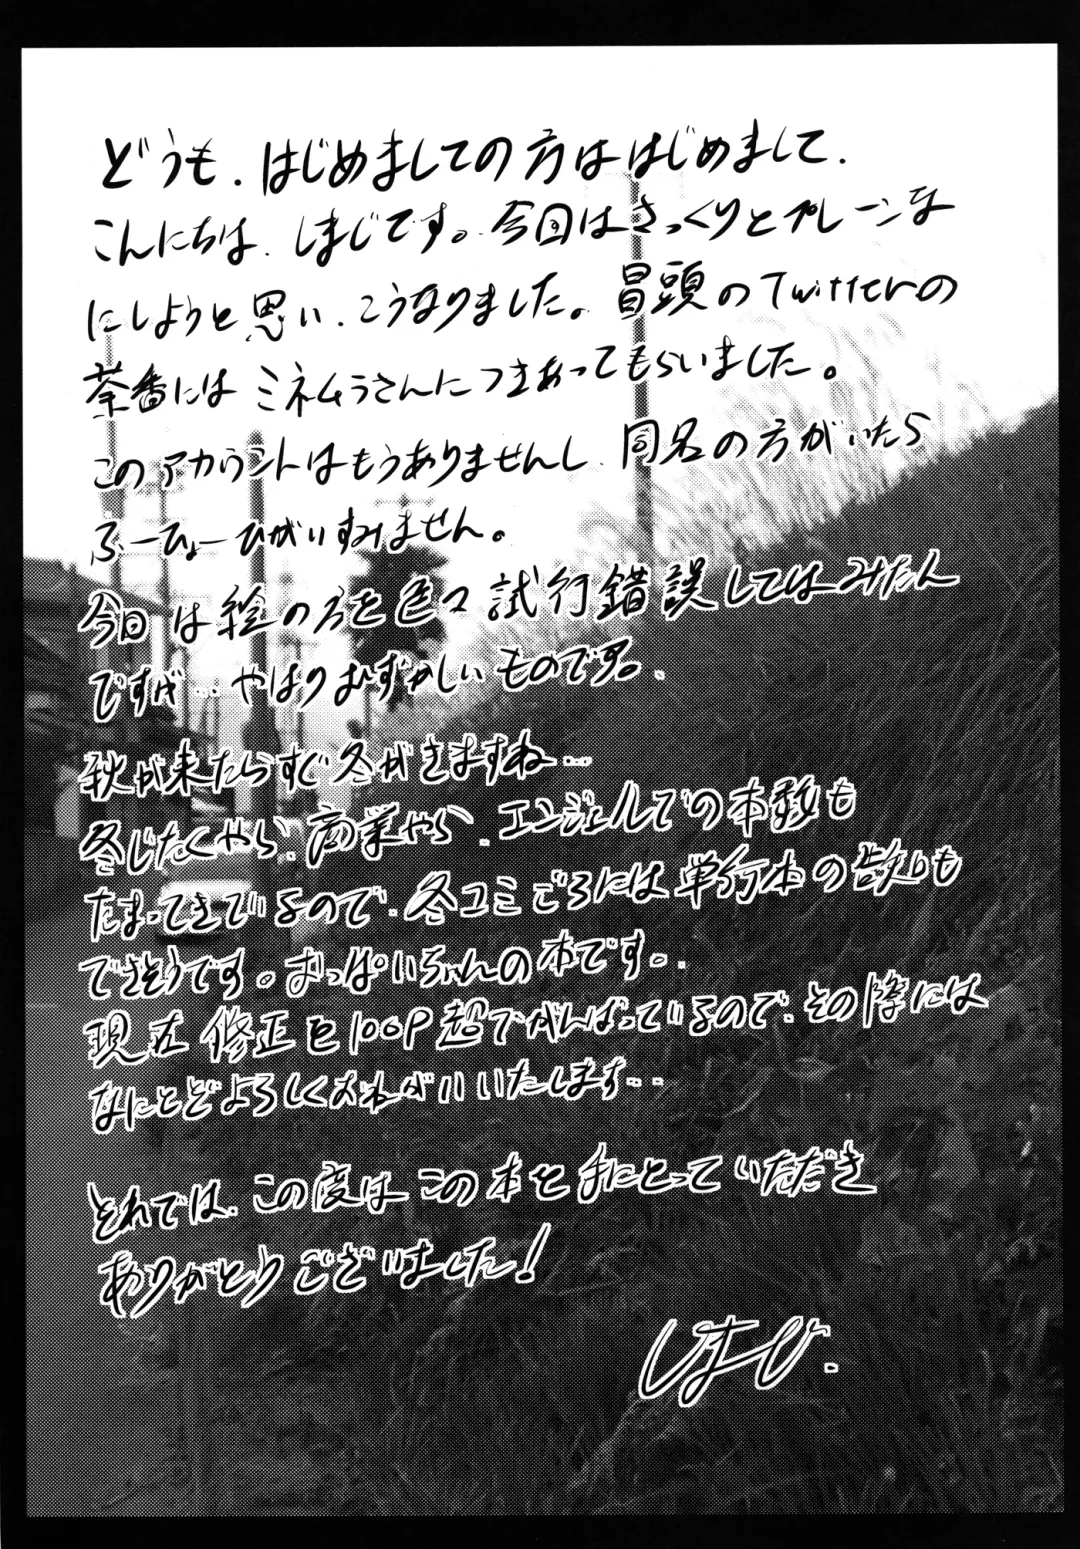 どうも、はじめましての方ははじめまして、
こんにちは、しまじです。今回はさっくりとプレーンな
にしようと思い、こうなりました。冒頭のTwitterの
茶番にはミネムラさんにつきあってもらいました。
このアカウントはもうありませんし、同名の方がいたら
ふーひょーひがいすみません。
今回は絵の方を色々試行錯誤してはみたん
ですが…やはりむずかしいものです。
秋が来たらすぐ冬がきますね…
冬じたくやら、商業やら、エンジェルでの本数も
たまってきているので、冬コミごろには単行本の告知も
できそうです。おっぱいちゃんの本です。
現在修正を100P超でがんばっているので、その際には
なにとどよろしくおねがいいたします…
それでは、この度はこの本を手にとっていただき
ありがとうございました!
しまじ